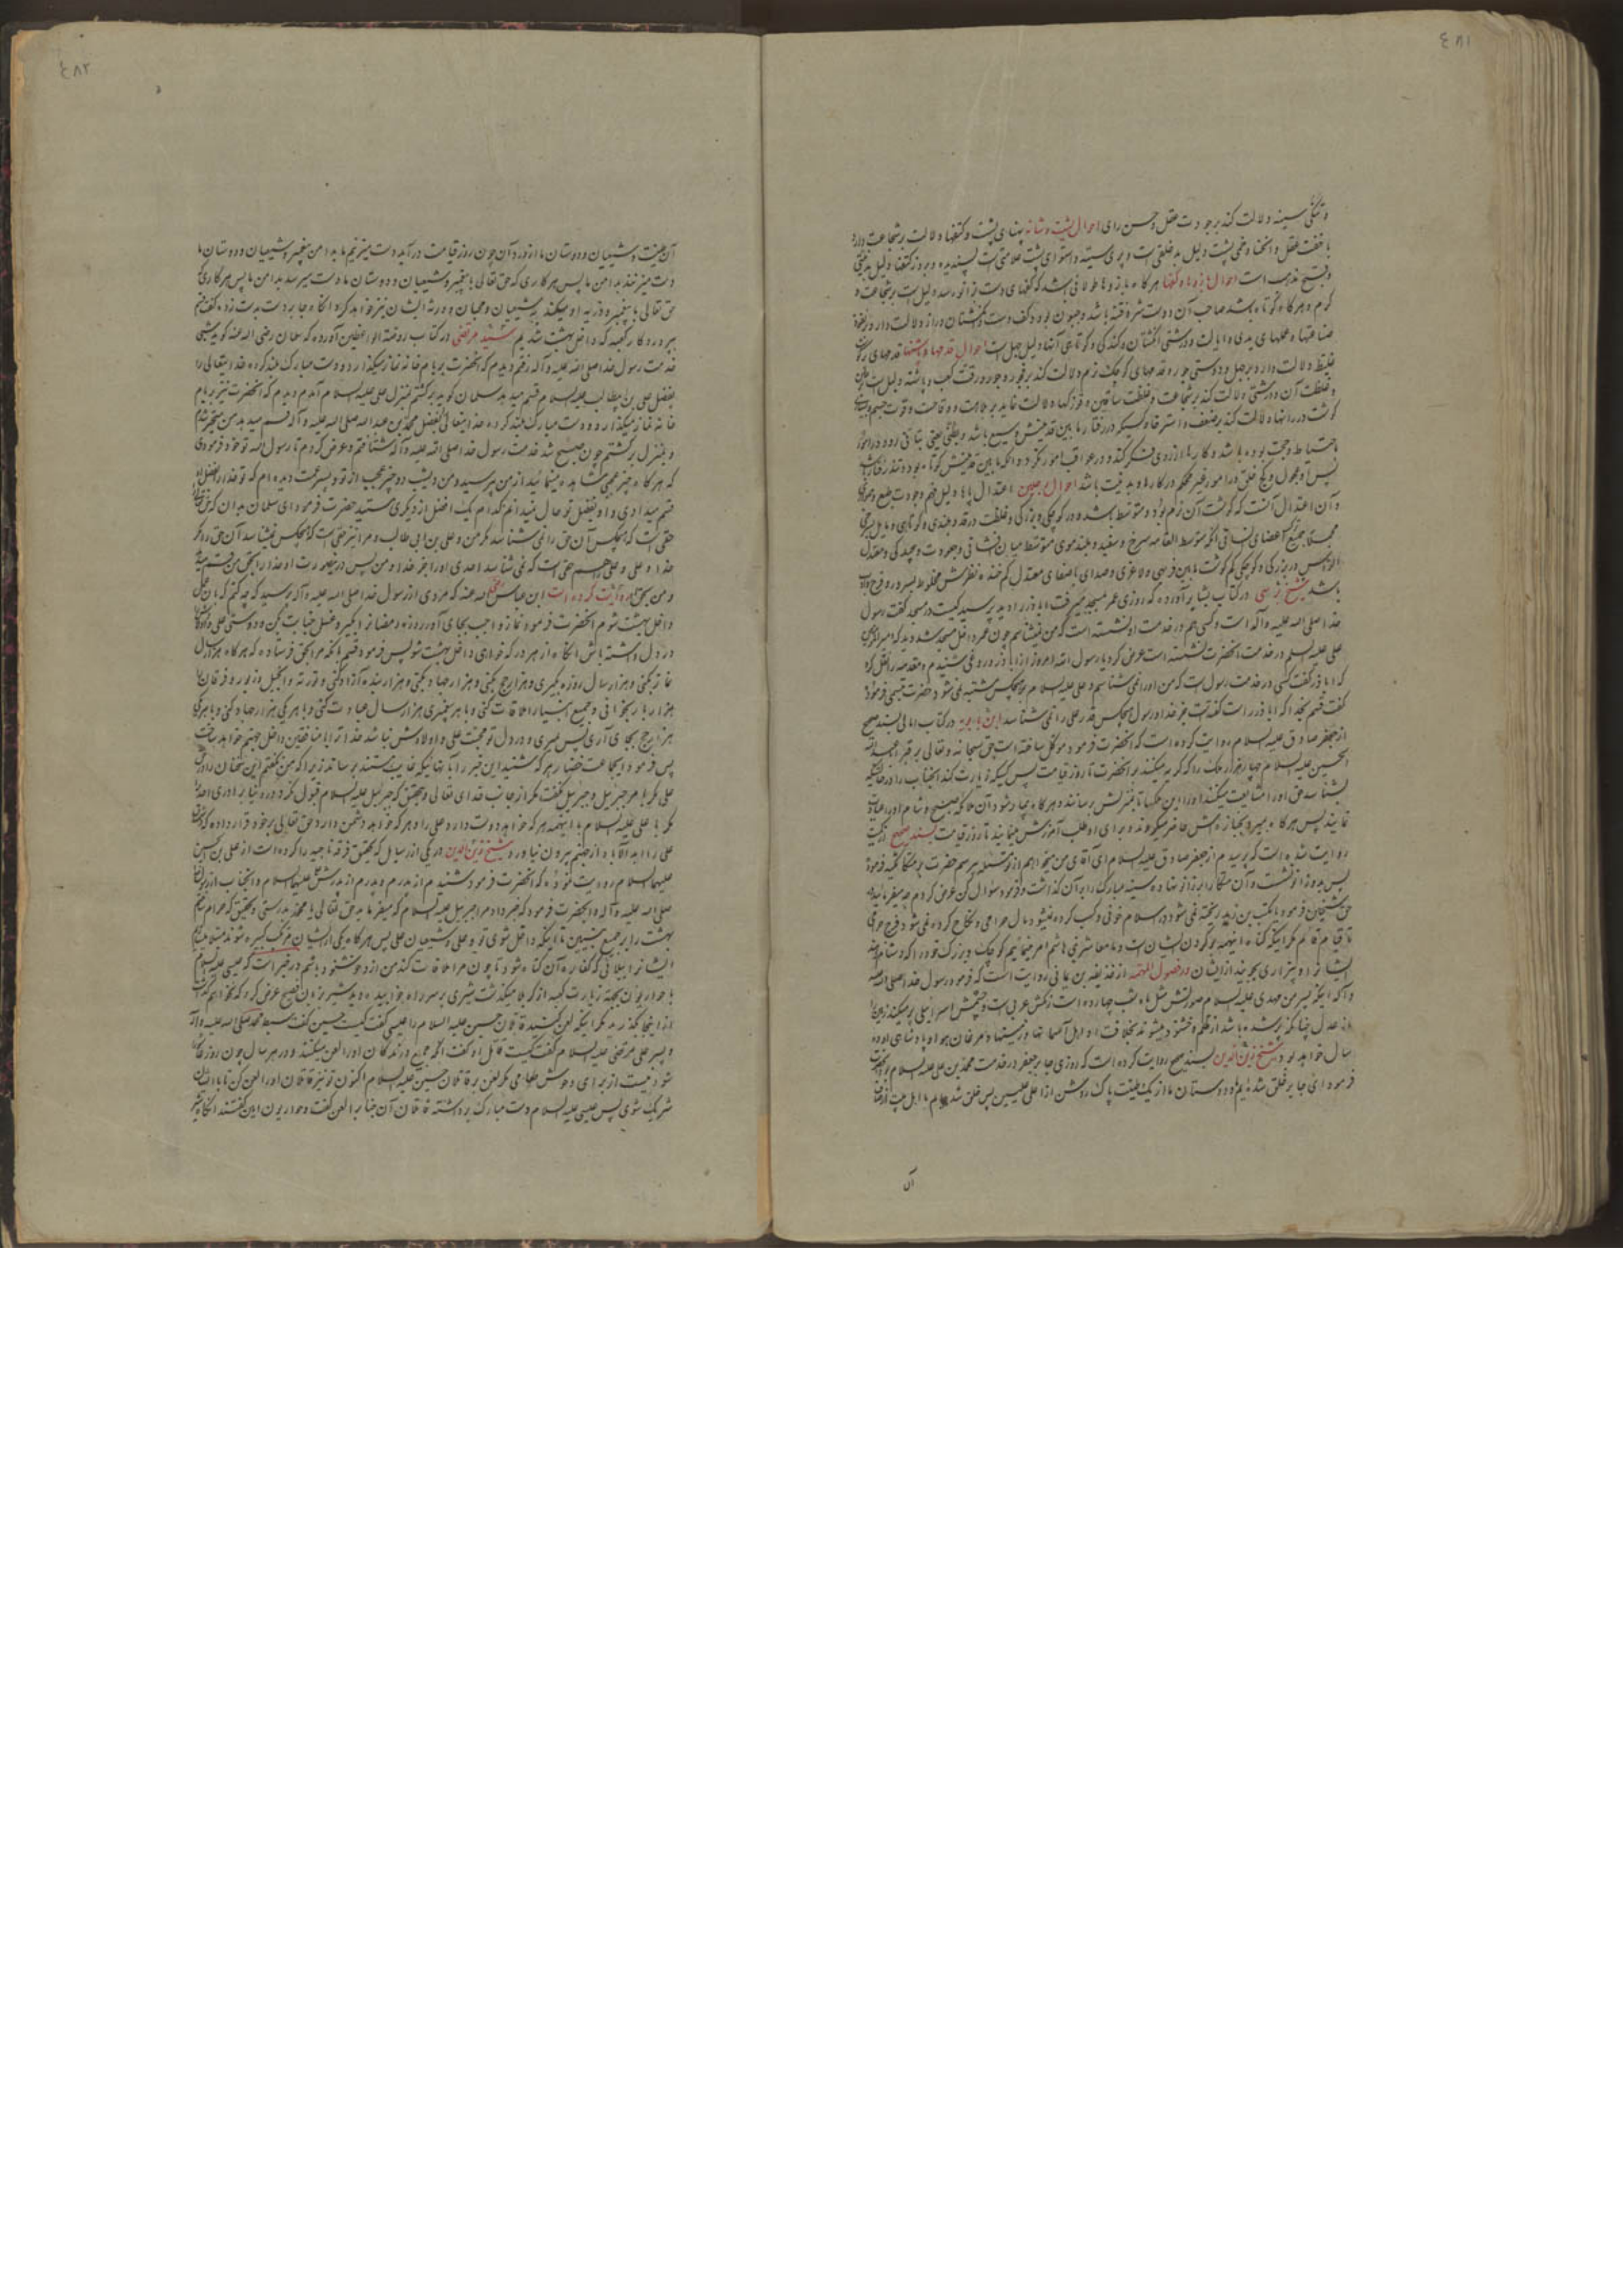 ٤٨١
و تنکی سینه دلالت کند بر جودت عقل و حسن رای احوال پشت و شانه پهنای پشت و کتفها دلالت بر شجاعت دارد
با خفت عقل و انحنا و خمی پشت دلیل بد خلقی است و استوای پشت علامتی است پسندیده و بروز کتفها دلیل بد نیتی
و قبح مذهب است احوال بازوها و کفها هرکاه بازوها طولانی باشد که کفهای دست بزانو رسد دلیل است بر شجاعت و
کرم و هرکاه کوتاه باشد صاحب آن دوست شر و فتنه باشد و جبون بود و کف دست و انکشتان دراز دلالت دارد بر نفوذ
صناعتها و عملهای یدی و ایالت و درشتی انکشتان و کندکی و کوتاهی آنها دلیل جهل است احوال قدمها و پشتها قدمهای پر کوشت
غلیظ دلالت دارد بر جهل و دوستی جور و قدمهای کوچک نرم دلالت کند بر فجور و جور و رقت کعب و پاشنه دلیل است
و غلظت آن و درشتی دلالت کند بر شجاعت و غلظت ساقین و قوزکها دلالت نماید بر بلاهت و وقاحت و قوت جسم و بسیاری
کوشت در رانها دلالت کند بر ضعف و استرخا و کسیکه در رفتار ما بین قدمینش وسیع باشد و بطئی یعنی بتانی رود در امور
با احتیاط و حجت بوده باشد و کارها را از روی فکر کند و در عواقب امور نکرد و انکه ما بین قدمینش کوتاه بود و تند رفتار باشد
پس او عجول و کج خلق در امور غیر محکم در کارها و بد نیت باشد احوال رجلین اعتدال پاها دلیل فهم و جودت طبع
و آن اعتدال آنست که کوشت آن نرم بود و متوسط باشد در کوچکی و بزرکی و غلظت و رقت و بلندی و کوتاهی و مایل بسرخی
مجملا جمیع اعضای انسانی انکه متوسط القامه سرخ و سفید و بلند موی متوسط میان و جعودت و بچیدکی و معتدل
الراس در بزرکی و کوچکی کم کوشت ما بین فربهی و لاغری و صدای باصفای معتدل کم خنده نظرش مخلوط بسرور و فرح
باشد شیخ در کتاب بشایر آورده که روزی عمر بمسجد میرفت اباذر را دید پرسید کیست در مسجد کفت رسول
خدا صلی الله علیه و آله است و کسی هم در خدمت او نشسته است که من نمیشناسم چون عمر داخل مسجد شد دید که امیر المومنین
علی علیه السلام در خدمت انحضرت نشسته است عرض کرد یا رسول الله امروز از اباذر دروغی شنیدم و مقدمه را نقل کرد
که اباذر کفت کسی در خدمت رسول است که من او را نمی شناسم و علی علیه السلام بر هیچکس مشتبه نمی شود حضرت تبسمی فرموده
کفت قسم بخدا که اباذر راست کفته است بجز خدا و رسول هیچکس قدر علی را نمی شناسد ابن بابویه در کتاب امالی بسند صحیح
از جعفر صادق علیه السلام روایت کرده است که انحضرت فرمود موکل ساخته است حق سبحانه و تعالی بر قبر ابا عبدالله
الحسین علیه السلام چهار هزار ملک را که کریه میکنند بر انحضرت تا روز قیامت پس کسیکه زیارت کند انجناب را در حالتیکه
بشناسد حق او را مشایعت میکنند او را این ملکها تا بمنزلش برسانند و هرکاه بیمار شود آن ملائکه صبح و شام او را عیادت
نمایند پس هرکاه بمیرد بجنازه اش حاضر میکردند و برای او طلب آمرزش مینمایند تا روز قیامت بسند صحیح
روایت شده است که پرسیدم از جعفر صادق علیه السلام ای آقای من میخواهم از تو مسئله بپرسم حضرت بر متکا تکیه فرموده
پس بدوزانو نشست و آن متکا را بر زانو نهاده سینه مبارک را بر آن کذاشت و فرمود سوال کن عرض کردم چه میفرمائید
تا قیام قائم مکر اینکه
ایشان را و بیزاری بجویند از ایشان در فصول المهمه از حذیفه بن یمانی روایت است که فرمود رسول خدا صلی الله علیه
و آله اینکه پسر من مهدی علیه السلام صورتش مثل ماه شب چهارده است رنکش عربی است و جسمش اسرائیلی پر میکند زمین را
از عدل چنانکه پر شده باشد از ظلم و خشنود میشوند بخلافت او اهل آسمانها و زمینها و مرغان هوا و پادشاهی او ده
سال خواهد بود شیخ زین الدین بسند صحیح روایت کرده است که روزی جابر جعفر در خدمت محمد بن علی علیه السلام بود
فرمود ای جابر خلق شده ایم ما و دوستان ما از یک طینت پاک روشن از اعلی علیین پس خلق شده ایم ما
آن
٤٨٢
آن طینت و شیعیان و دوستان ما از دور آن چون روز قیامت در آید دست میزنیم ما بدامن پیغمبر و شیعیان و دوستان ما
دست میزنند بدامن ما پس هر کاری که حق تعالی با پیغمبر و شیعیان و دوستان ما دست میرسد بدامن ما پس هر کاری
حق تعالی با پیغمبر و ذریه او میکند بشیعیان و محبان و ذریه ایشان نیز خواهد کرد انکاه جابر دست بدست زده کفت قسم
بپروردکار کعبه که داخل بهشت شدیم سید مرتضی در کتاب روضة الواعظین آورده که سلمان رضی الله عنه کوید شبی
خدمت رسول خدا صلی الله علیه و آله رفتم و دیدم که انحضرت بر بام خانه نماز میکذارد و دست مبارک بلند کرده خدایتعالی را
بفضل علی بن ابیطالب علیه السلام قسم میدهد سلمان کوید برکشتم بمنزل علی علیه السلام آمدم و دیدم که انحضرت نیز بر بام
خانه نماز میکذارد و دست مبارک بلند کرده خدایتعالی را بفضل محمد بن عبدالله صلی الله علیه و آله قسم میدهد من متحیر شدم
و بمنزل برکشتم چون صبح شد خدمت رسول خدا صلی الله علیه و آله شتافتم و عرض کردم یا رسول الله تو خود فرمودی
که هرکاه چیز عجبی مشاهده مینمائید از من پرسید و من دیشب دو چیز عجیب از تو و پسر عمت دیده ام که تو خدا را بفضل او
قسم میدادی و او بفضل تو حال نمیدانم کدام یک افضل از دیکری هستید حضرت فرمود ای سلمان بدان که خدا را
حقی است که هیچکس آن حق را نمی شناسد مکر من و علی بن ابی طالب و مرا نیز حقی است که هیچکس نمیشناسد آن حق را مکر
خدا و علی و علی را هم حقی است که نمی شناسد احدی او را بجز خدا و من پس در اینصورت او خدا را بحق من قسم میدهد
و من بحق او روایت کرده است ابن عباس رضی الله عنه که مردی از رسول خدا صلی الله علیه و آله پرسید که چه کنم که بآن عمل
داخل بهشت شوم انحضرت فرمود نماز واجب بجای آور روزه رمضان را بکیر و غسل جنابت بکن و دوستی علی و اولادش را
در دل داشته باش انکاه از هر در که خواهی داخل بهشت شو پس فرمود قسم بانکه مرا بحق فرستاده که هرکاه هزار سال
نماز بکنی و هزار سال روزه بکیری و هزار حج بکنی و هزار جهاد بکنی و هزار بنده آزاد کنی و توریة و انجیل و زبور و فرقان را
هزار بار بخوانی و جمیع انبیا را ملاقات کنی و با هر پیغمبری هزار سال عبادت کنی و با هر یکی هزار جهاد کنی و با هر یکی
هزار حج بجای آری پس بمیری و در دل تو محبت علی و اولادش نباشد خدا ترا با منافقین داخل جهنم خواهد ساخت
پس فرمود ای جماعت حضار هر که شنید این خبر را بآنهائیکه غایب هستند برساند زیرا که من نکفتم این سخنان را در حق
علی مکر بامر جبرئیل و جبرئیل نکفت مکر از جانب خدای تعالی و بتحقیق که جبرئیل علیه السلام قبول نکرد در دنیا برادری احدی را
مکر با علی علیه السلام با اینهمه هر که خواهد دوست دارد علی را و هر که خواهد دشمن دارد حق تعالی بر خود قرار داده که دشمن
علی را ابد الاباد از جهنم بیرون نیاورد شیخ زین الدین در یکی از رسایل که تحقیق فرقه ناجیه را کرده است از علی بن الحسین
علیهما السلام روایت نموده که انحضرت فرمود شنیدم از پدرم و پدرم از پدرش علی علیهما السلام و انجناب از رسولخدا
صلی الله علیه و آله و انحضرت فرمود که خبر داد مرا جبرئیل علیه السلام که میفرماید حق تعالی یا محمد بدرستی و تحقیق که حرام کردم
بهشت را بر جمیع نبیین تا اینکه داخل شوی تو و علی و شیعیان علی پس هرکاه یکی از ایشان مرتکب کبیره شوند
ایشان را ببلائی که کفاره آن کناه شود تا چون مرا ملاقات کنند من از ده خشنود باشم در خبر است که عیسی علیه السلام
با حواریون بجهة زیارت کعبه از کربلا میکذشت شیری بر سر راه خوابیده دید شیر بزبان فصیح عرض کرد که نخواهم کذاشت
از اینجا بکذرید مکر اینکه لعن کنید قاتلان حسین علیه السلام را عیسی کفت کیست حسین کفت سبط محمد صلی الله علیه و آله
و پسر علی مرتضی علیه السلام کفت کیست قاتل او کفت انکه جمیع درندکان او را لعن میکنند و در هر سال چون روز عاشورا
شود نیست از برای وحوش طعامی مکر لعن بر قاتلان حسین علیه السلام اکنون تو نیز قاتلان او را لعن کن تا با ایشان
شریک شوی پس عیسی علیه السلام دست مبارک برداشته قاتلان آن جناب را لعن کفت و حواریون امین کفتند انکاه شیر